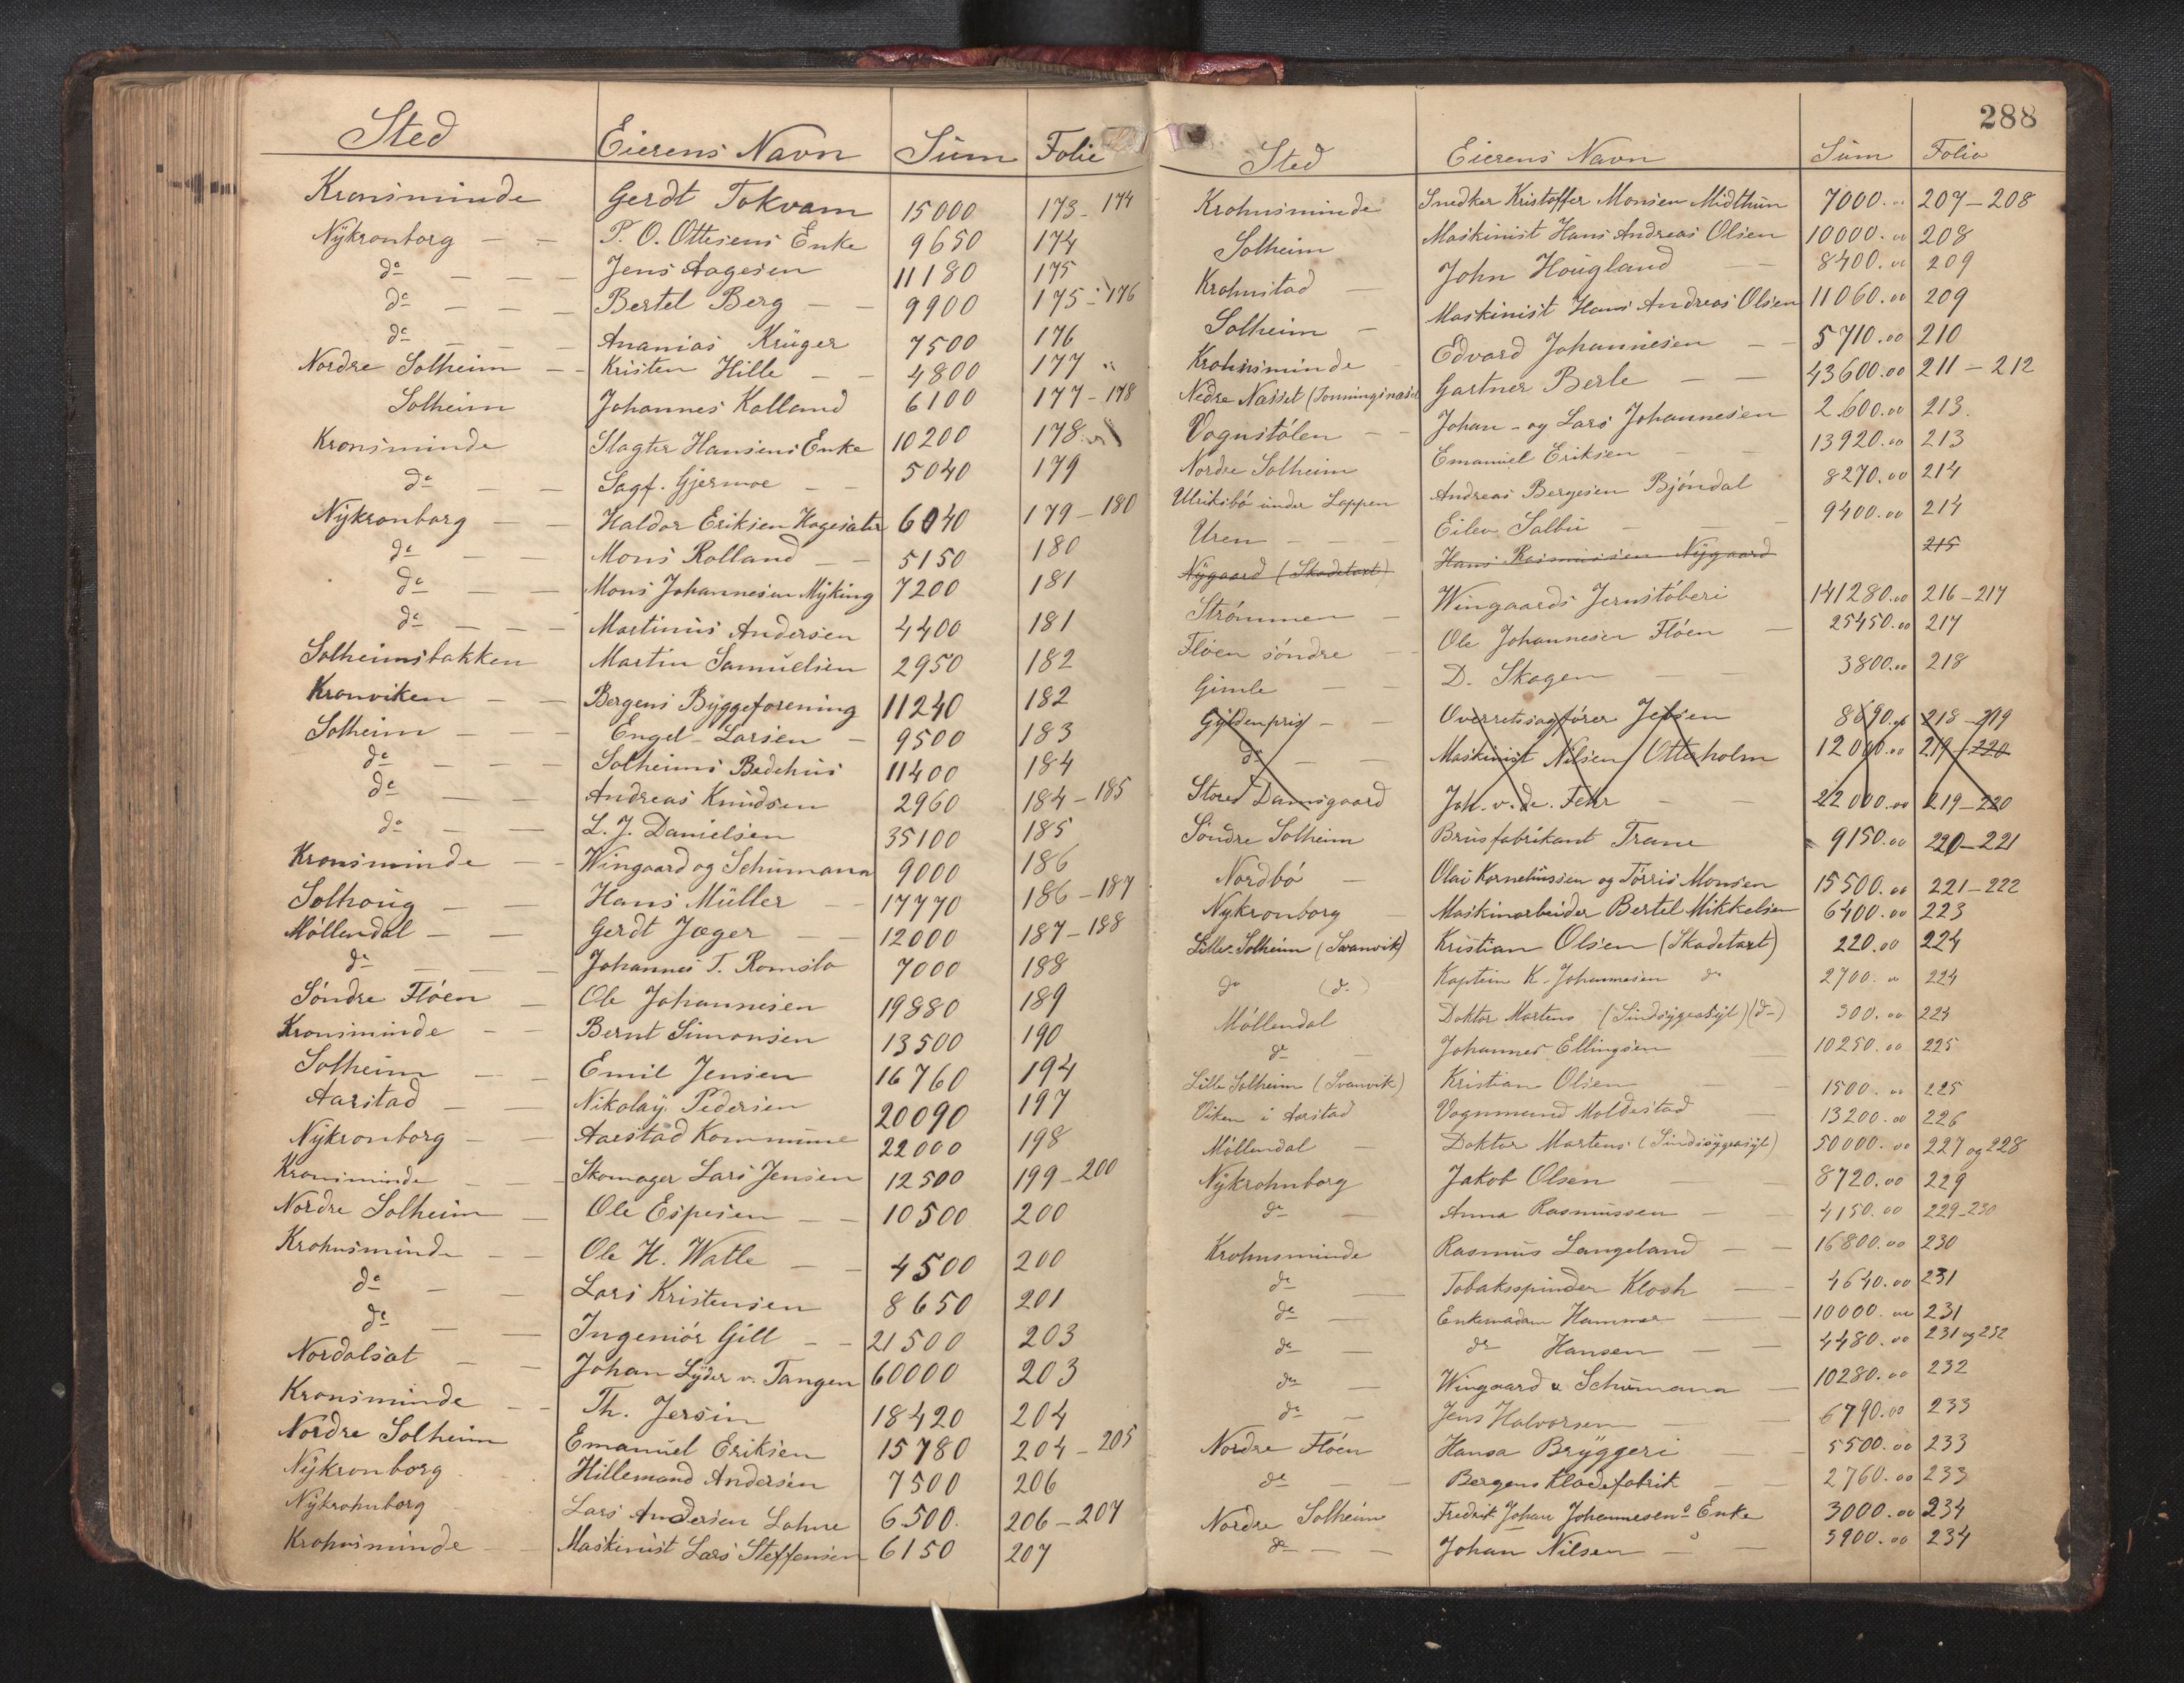 Sted Eierens Navn Sum Folie
Kronsminde Gerdt Tokvam 15000 173-174
Nÿkronborg — — P. O. Ottesens Enke 9650 174
do — — — Jens Aagesen 11180 175
do — — — Bertel Berg — — 9900 175-176
do — — — Ananias Krüger 7500 176
Nordre Solheim — — Kristen Hille — — 4800 177 "
Solheim Johannes Kolland 6100 177-178
Kronsminde Slagter Hansens Enke 10200 178
do — — Sagf. Gjermoe — — 5040 179
Nÿkronborg — — Haldor Eriksen Hagesæter 6040 179-180
do — — Mons Rolland — — 5150 180
do — — Mons Johannesen Mÿking 7200 181
do — — — Martinus Andersen 4400 181
Solheimsbakken Martin Samuelsen 2950 182
Kronviken — — Bergens Bÿggeforening 11240 182
Solheim — — — Engel Larsen — 9500 183
do — — — Solheims Bedehus 11400 184
do — — Andreas Knudsen 2960 184-185
do — — L. J. Danielsen 35100 185
Kronsminde — — Wingaard og Schumann 9000 186
Solhoug — — Hans Müller — — 17770 186-187
Möllendal — — Gerdt Jæger — 12000 187-188
do — — — Johannes T. Romslo 7000 188
Söndre Flöen — Ole Johannesen 19880 189
Kronsminde — — Bernt Simonsen 13500 190
Solheim — — Emil Jensen 16760 194
Aarstad — — Nikolaÿ Pedersen 20090 197
Nÿkronborg — — Aarstad Kommune 22000 198
Kronsminde — — Skomager Lars Jensen 12500 199-200
Nordre Solheim — Ole Espesen — — 10500 200
Krohnsminde — — Ole H. Watle — — 4500 200
do — — Lars Kristensen 8650 201
do — — Ingeniör Gill — — 21500 203
Nordalsat — — Johan Lÿder v. Tangen 60000 203
Kronsminde — — Th. Jersin 18420 204
Nordre Solheim Emanuel Eriksen 15780 204-205
Nÿkronborg Hillemand Andersen 7500 206
Nÿkrohnborg Lars Andersen Lohne 6500. 206-207
Krohnsminde — Maskinist Lars Steffensen 6150 207
288
Sted Eierens Navn Sum Folio
Krohnsminde Snedker Kristoffer Monsen Midthun 7000.00 207-208
Solheim Maskinist Hans Andreas Olsen 10000.00 208
Krohnstad — John Hougland — 8400.00 209
Solheim — Maskinist Hans Andreas Olsen 11060.00 209
Krohnsminde Edvard Johannesen — — 5710.00 210
Nedre Næsset (Tonningsnæset Gartner Berle — — 43600.00 211-212
Vognstölen — — Johan- og Lars Johannesen 2600.00 213.
Nordre Solheim Emanuel Eriksen — — 13920.00 213
Ulriksbö under Lappen Andreas Bergesen Bjöndal 8270.00 214
Uren — — — Eilev Salbu — — — 9400.00 214
Nÿgaard (Skadetaxt) Hans Rasmussen Nÿgaard 215
Strömmen — Wingaards Jernstöberi 141280.00 216-217
Flöen söndre — Ole Johannesen Flöen — 25450.00 217
Gimle — — D. Skagen — — 3800.00 218
Gÿldenpris — — Overretssagförer Jebsen 8690.00 218-219
do — — Maskinist Nilsen / Otterholm 12000.00 219-220
Store Damsgaard Joh. v. de. Fehr — — 22000.00 219-220
Söndre Solheim Brusfabrikant Trane 9150.00 220-221
Nordbö — Olai Kornelüssen og Törris Monsen 15500.00 221-222
Nÿkronborg Maskinarbeider Bertel Mikkelsen 6400.00 223
Lille-Solheim (Svanvik) Kristian Olsen (Skadetaxt) 220.00 224
do (do) Kaptein K. Johannesen do 2700.00 224
Möllendal Doktor Martens (Sindsÿgeasÿl) (do) 300.00 224
do — Johannes Ellingsen — 10250.00 225
Lille Solheim (Svanvik) Kristian Olsen — 1500.00 225
Viken i Aarstad Vognmand Moldestad — 13200.00 226
Möllendal — Doktor Martens (Sindssÿgeasÿl) 50000.00 227 og 228
Nÿkrohnborg Jakob Olsen — 8720.00 229
do — Anna Rasmussen — — 4150.00 229-230
Krohnsminde Rasmus Langeland — — 16800.00 230
do — Tobaksspinder Klosh — 4640.00 231
do — Enkemadam Hammer — — 10000.00 231
do — do Hansen — — 4480.00 231 og 232
do — Wingaard & Schumann — 10280.00 232
do — Jens Halvorsen — — 6790.00 233
Nordre Flöen Hansa Brÿggeri — — 5500.00 233
do — — Bergens Klædefabrik — 2760.00 233
Nordre Solheim Fredrik Johan Johannesens Enke 3000.00 234
do — — — Johan Nilsen — — 5900.00 234